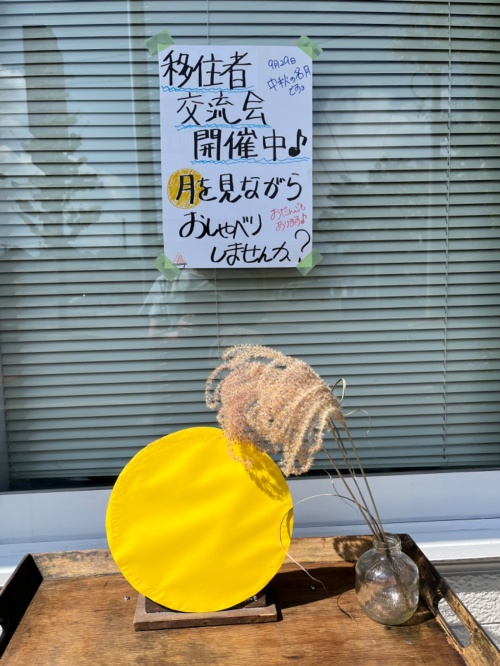 移住者
9月29日
中秋の名月
です♪
交流会
開催中♪
月を見ながら
おしゃべり
おだんごも
あります♪
しませんか?